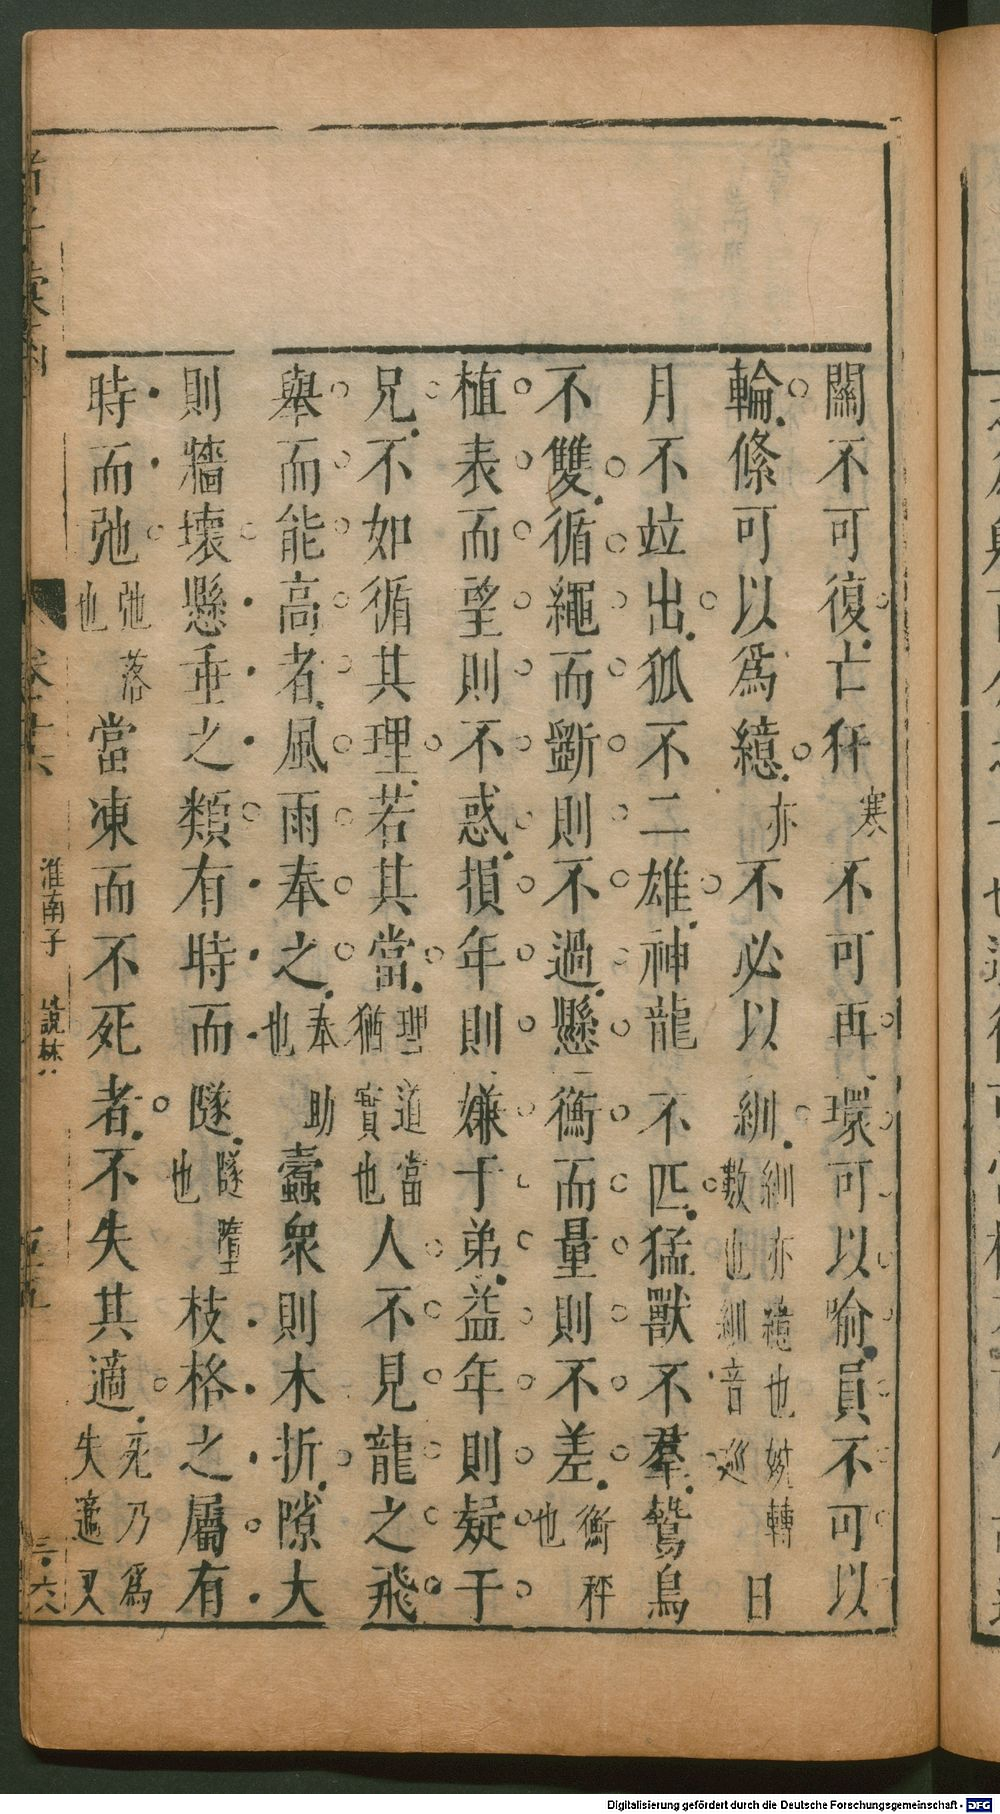 關不可復亡犴寒不可再環可以喻員不可以
輪絛可以爲繶亦不必以紃紃亦繶也婉轉數也紃音巡日
月不竝出狐不二雄神龍不匹猛獸不羣鷙鳥
不雙循繩而斲則不過懸衡而量則不差衡秤也
植表而望則不惑損年則嫌于弟益年則疑于
兄不如循其理若其當理道當猶實也人不見龍之飛
舉而能高者風雨奉之奉助也蠹衆則木折隙大
則牆壞懸垂之類有時而隧隧墮也枝格之屬有
時而弛弛落也當凍而不死者不失其適死乃爲失適又
淮南子 說林
Digitalisierung gefördert durch die Deutsche Forschungsgemeinschaft - DFG